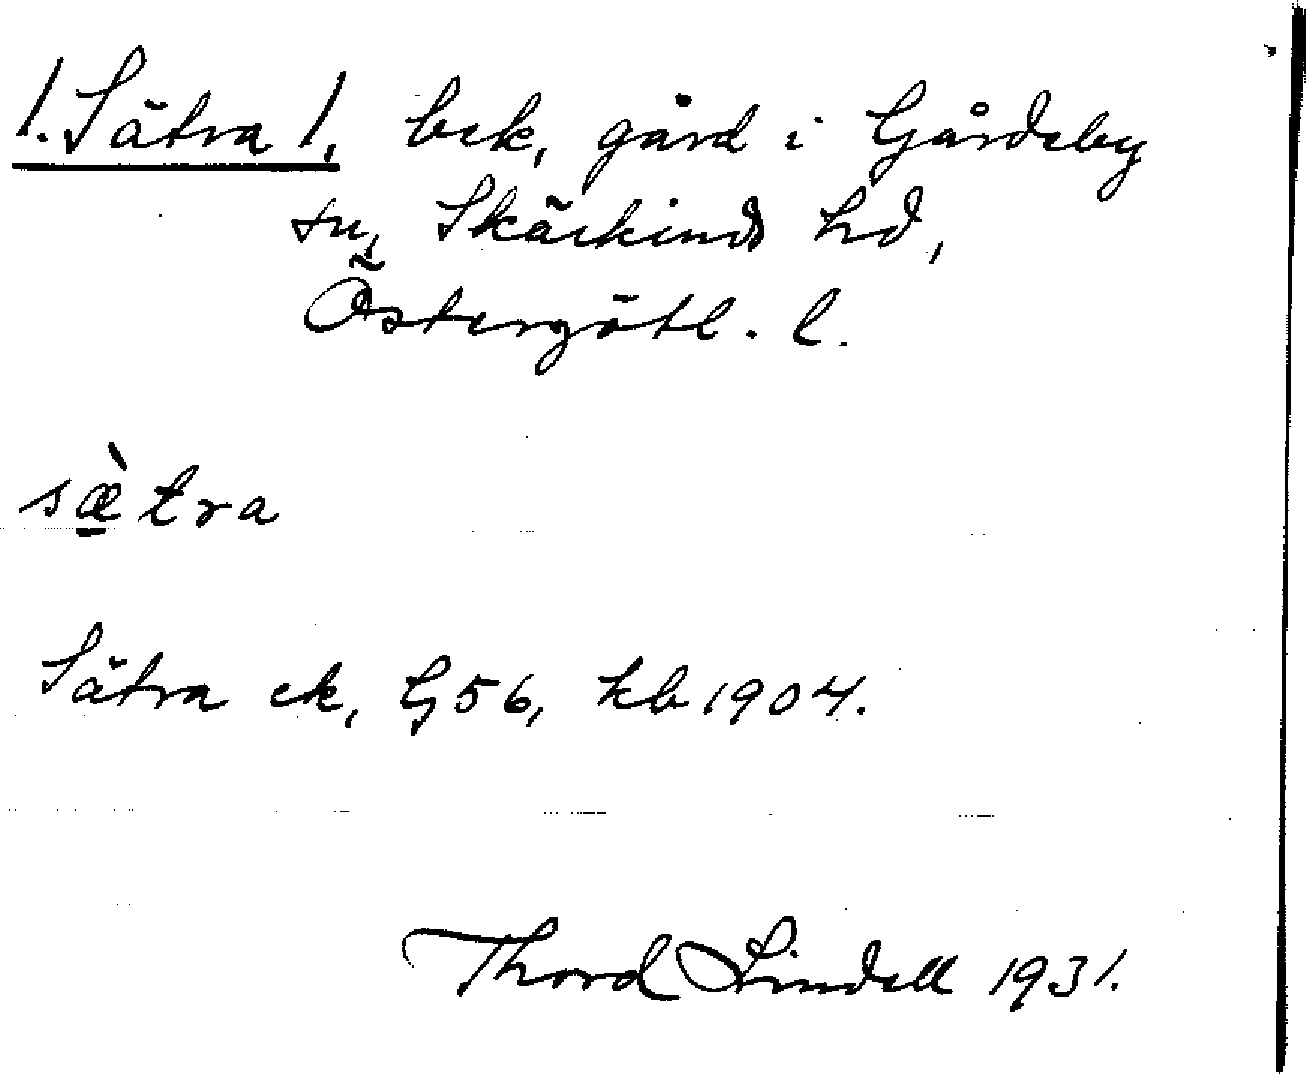 1. Sätra 1, bek, gård i Gårdeby
sn, Skärkinds hd,
Östergötl. l.
sæ̀tra
Sätra ek, G56, kb 1904.
Thord Lindell 1931.